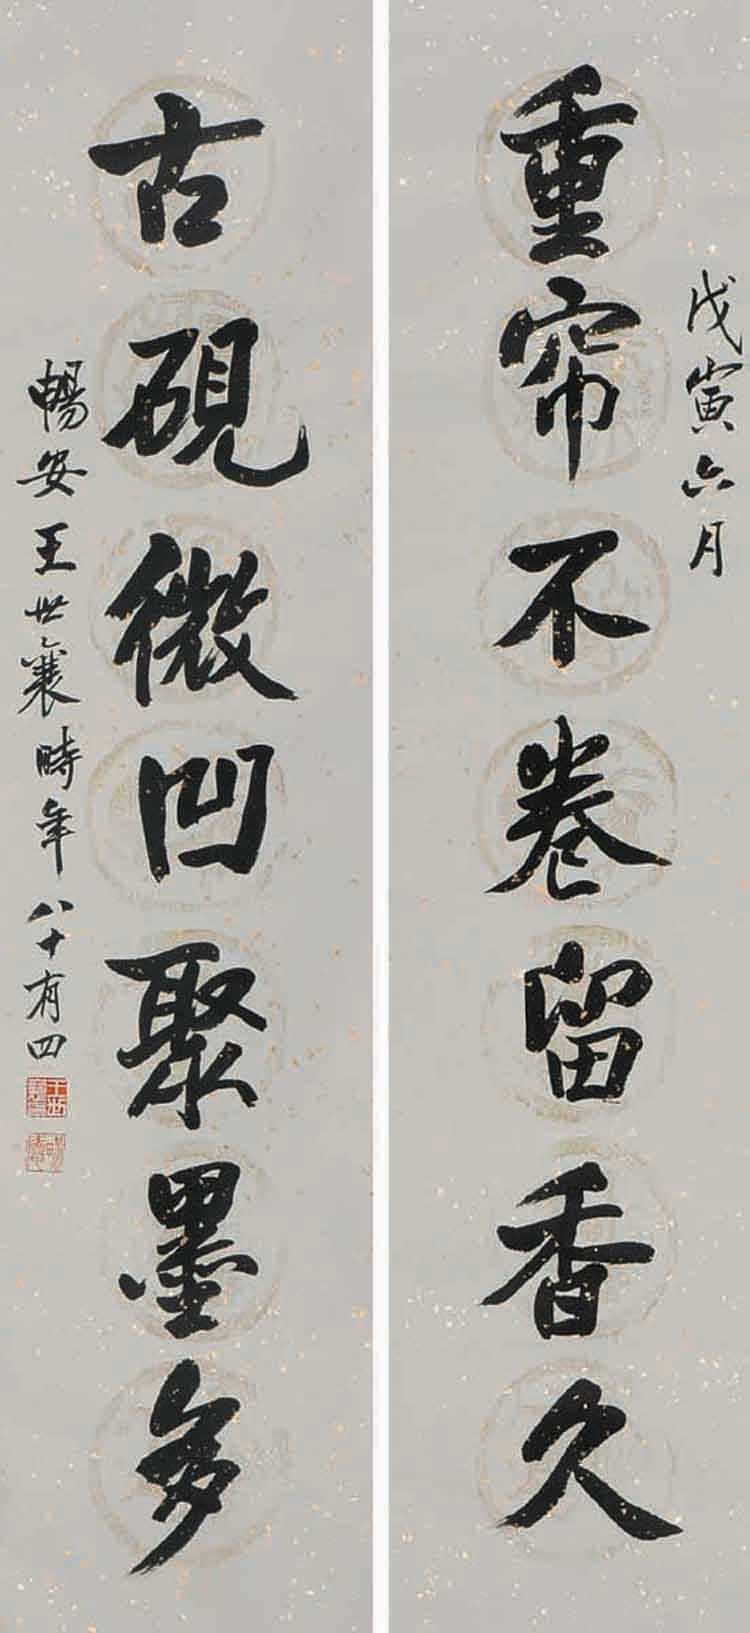 戊寅六月
重帘不卷留香久
古砚微凹聚墨多
暢安王世襄時年八十有四